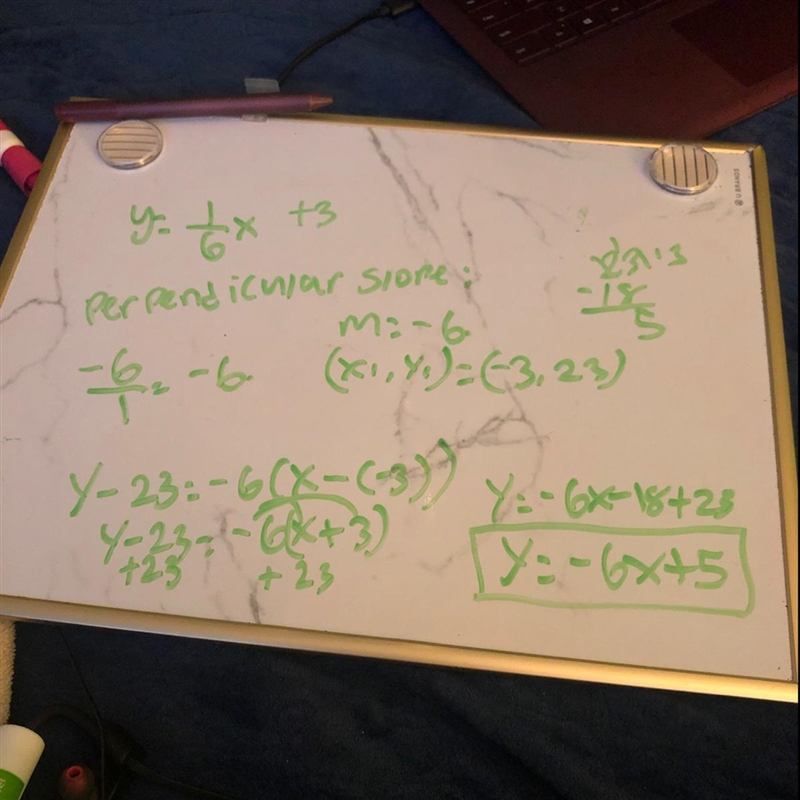 U BRANDS
y = 1/6 x + 3
perpendicular slope:
m = -6
-6/1 = -6
(x1, y1) = (-3, 23)
-18
5
y - 23 = -6(x - (-3))
y - 23 = -6(x + 3)
+23 +23
y = -6x - 18 + 23
y = -6x + 5